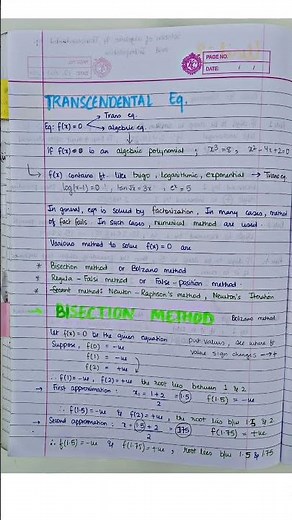 PAGE NO.
DATE: / /
TRANSCENDENTAL Eq.
Eq: f(x)=0 → Trans eq.
→ algebraic eq.
If f(x)=0 is an algebraic polynomial ; x³=8 ; x²-4x+2=0
f(x) contains ft. like trigo, logarithmic, exponential → Trans eq.
log(x-1)=0 ; tan2x=3x ; eˣ=5
In general, eqn is solved by factorization, In many cases, method
of fact fails. In such cases, numerical method are used.
Various method to solve f(x)=0 are
* Bisection method or Bolzano method
* Regula-Falsi method or False-position method
* method: Newton-Raphson's method, Newton's Iteration
→ BISECTION METHOD Bolzano method
Let f(x)=0 be the given equation put values, see where f
Suppose, f(0) = -ve value sign changes
f(1) = -ve
f(2) = +ve
∴ f(1)=-ve, f(2)=+ve the root lies between 1 & 2
→ First approximation: x₁ = 1+2/2 = 1.5 f(1.5) = -ve
∴ f(1.5)=-ve & f(2)=+ve, the root lies b/w 1.5 & 2
→ Second approximation: x = 1.5+2/2 = 1.75 f(1.75) = +ve
∴ f(1.5)=-ve & f(1.75)=+ve, root lies b/w 1.5 & 1.75